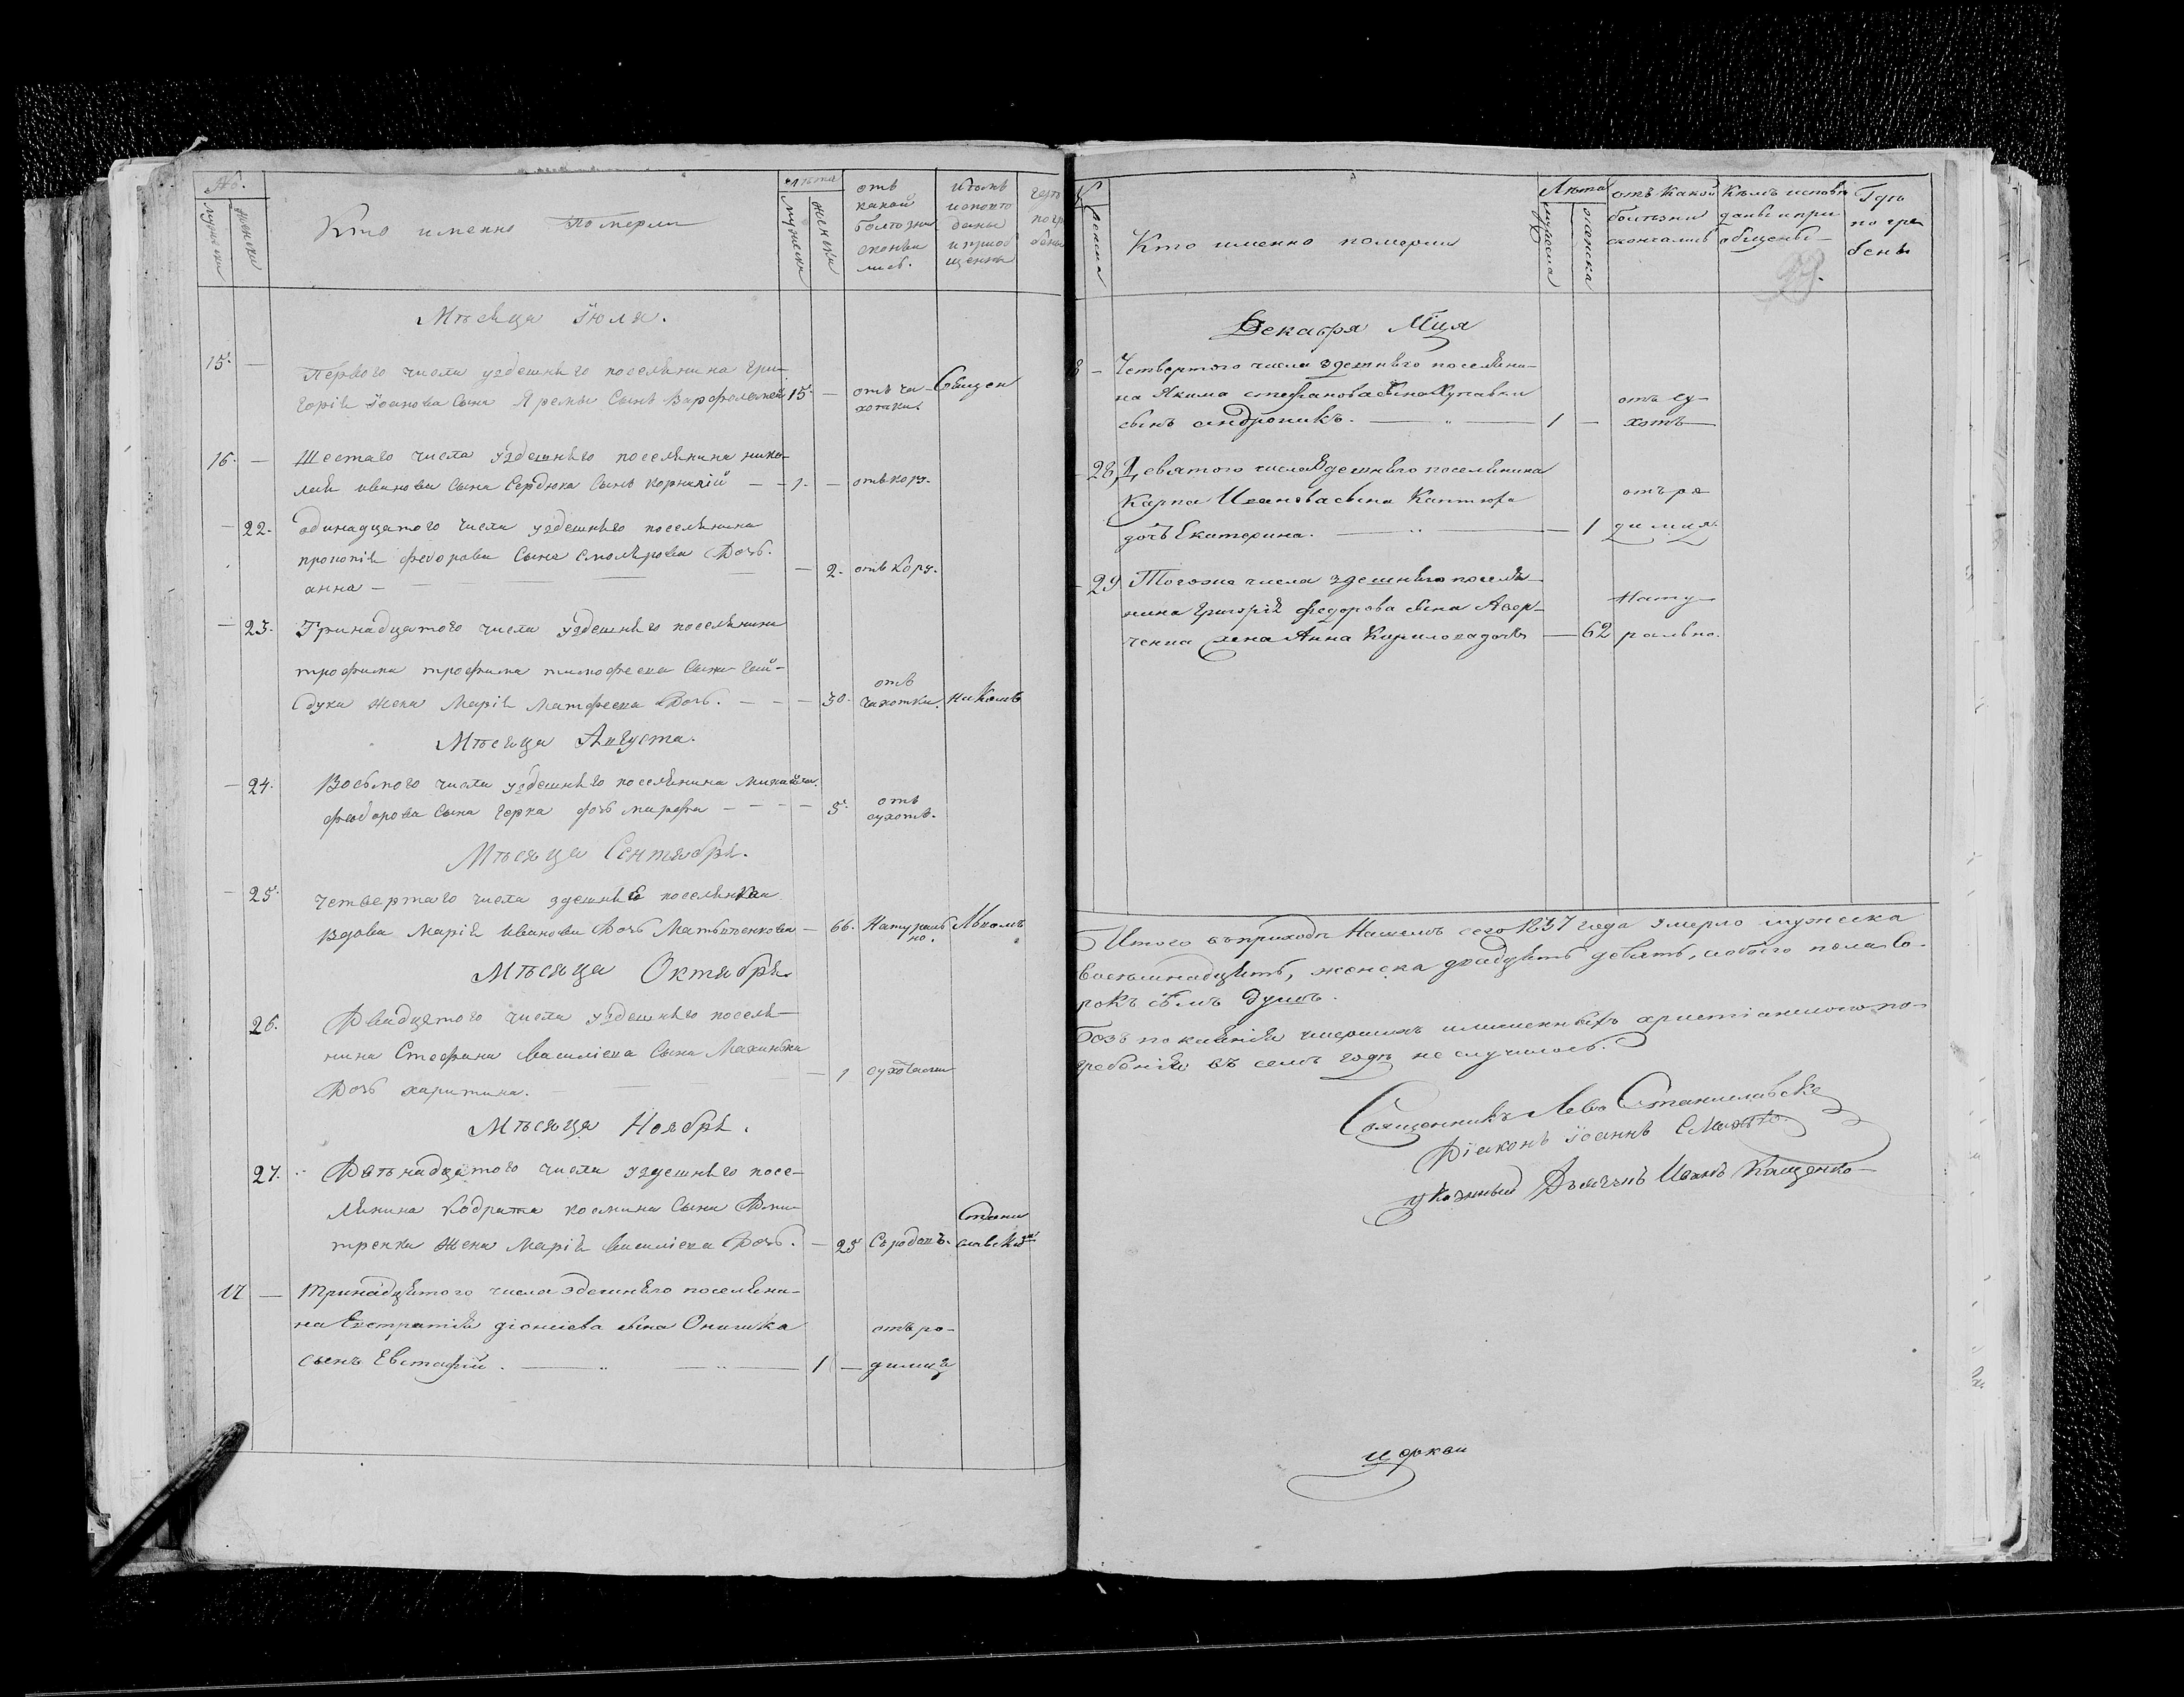 №.
мужески
женски
Кто именно Померли
лѣта
мужеска
женска
отъ
какой
болѣзни
скончал
лись.
и кемъ
исповѣ
даны
и приоб
щенны
Мѣсяца Іюля.
15. — Первого числа уздешняго поселянина Гри-
горія Іоанова Сына Яремы Сынъ Варфоломей 15. — отъ ча-
хотки.
16. — Шестаго числа уздешняго поселянина нико-
лая иванова Сына Сердюка Сынъ корнилій — — 1. — отъ кору.
— 22. одинадцатого числа уздешняго поселянина
прокопія федорова Сына Столярова Дочь.
анна — — 2. отъ кору.
— 23. Тринадцатого числа уздешняго поселянина
трофима трофима тимофеева Сына Гай-
дука жена Марія Матфеева Дочь. — — — 30. отъ чахотки. Николъ
Мѣсяца Августа.
— 24. Восьмого числа уздешняго поселянина михайла
федорова Сына горка дочь марфа — — — — 5. отъ
сухотъ.
Мѣсяца Сентября.
— 25. четвертаго числа здешняя поселянка
вдова Марія иванова Дочь — 66. Натураль
но.
Мѣсяца Октября
26. Двадцятого числа уздешняго поселя-
нина Стефана василіева Сына
Дочь харитина. — — 1
Мѣсяца Ноября.
27. Пятьнадцятого числа уздешняго посе-
лянина Кодрата космина Сына Дми-
тренка жена Марія василіева Дочь. — 25 Стани
славскій
17 — Тринадцятого числа здешняго поселяни-
на Евстратія діонисіева сына Онишка отъ ро-
сынъ Евстафій. — „ — „ — 1 — димца
женска
Кто именно померли
Лѣта
мужеска
женска
отъ какой
болѣзни
скончались
Кѣмъ исповѣ
даны и при
общены
Гдѣ
погре
бены
Декабря Мця
8 — Четвертого числа здешняго поселяни-
на Якима стефанова сына отъ су-
сынъ андроникъ. — „ — 1 — хотъ
— 28. Девятого числа здешняго поселянина
Карпа Иванова сына Каптюра отъ ро
дочь Екатерина. — „ — — 1 димца.
— 29 Тогоже числа здешняго поселя-
нина Григорія федорова сына Авер- Нату
ченка жена Анна Кирилова дочь — 62 рально.
Итого въ приходѣ Нашемъ сего 1837 года умерло мужеска
восемьнадцять, женска двадцять девять, а обоего пола Со-
рокъ сѣмь душъ.
Безъ покаянія умершихъ и лишенныхъ христіанского по-
гребенія въ семъ годѣ не случилось.
Священникъ Левъ Станиславскій
Діаконъ Іоаннъ
указный Дьячекъ Иванъ Кащенко
церкви